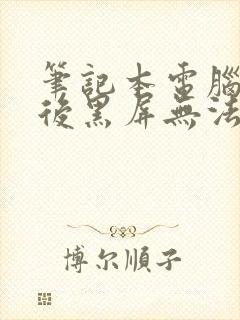 筆記本電腦
後黑屏無法
博尔順子